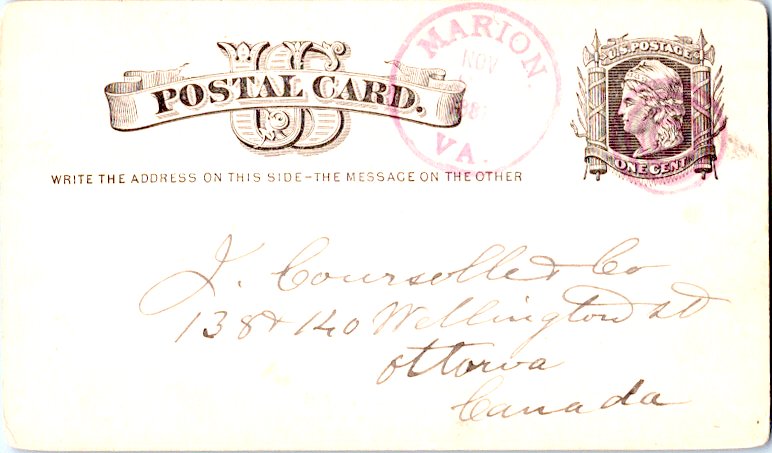 US
POSTAL CARD.
WRITE THE ADDRESS ON THIS SIDE—THE MESSAGE ON THE OTHER
MARION.
NOV
VA.
U.S. POSTAGE
ONE CENT
J. Coursolle & Co
138 & 140 Wellington St
Ottawa
Canada